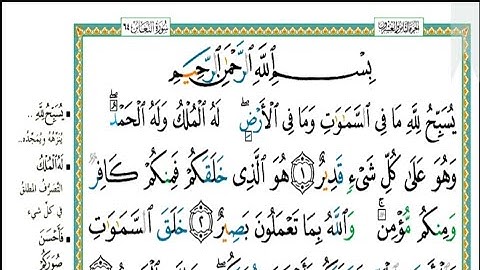 سورة التغابن ٦٤
الجزء الثامن والعشرون
بِسْمِ اللَّهِ الرَّحْمَٰنِ الرَّحِيمِ
يُسَبِّحُ لِلَّهِ مَا فِي السَّمَاوَاتِ وَمَا فِي الْأَرْضِ ۖ لَهُ الْمُلْكُ وَلَهُ الْحَمْدُ ۖ
وَهُوَ عَلَىٰ كُلِّ شَيْءٍ قَدِيرٌ ﴿١﴾ هُوَ الَّذِي خَلَقَكُمْ فَمِنكُمْ كَافِرٌ
وَمِنكُم مُّؤْمِنٌ ۚ وَاللَّهُ بِمَا تَعْمَلُونَ بَصِيرٌ ﴿٢﴾ خَلَقَ السَّمَاوَاتِ
▪ يُسَبِّحُ لِلَّهِ ..
يُنَزِّهُهُ وَيُمَجِّدُهُ..
▪ لَهُ الْمُلْكُ
التَّصَرُّفُ المُطلَقُ
في كلِّ شيء
▪ فَأَحْسَنَ
صُوَرَكُمْ